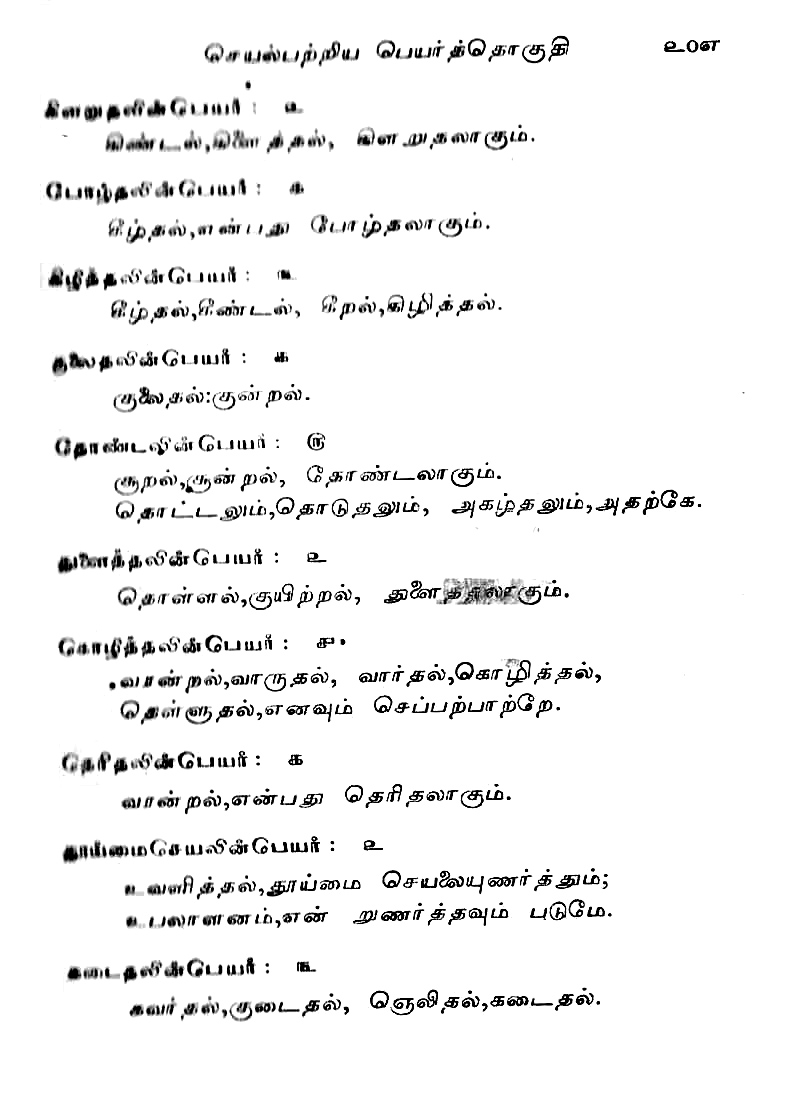 செயல்பற்றிய பெயர்த்தொகுதி ௨௦௭
கிளறுதலின்பெயர் : ௨
கிண்டல்,கிளைத்தல், கிளறுதலாகும்.
போழ்தலின்பெயர் : ௧
கீழ்தல்,என்பது போழ்தலாகும்.
கிழித்தலின்பெயர் : ௩
கீழ்தல்,கீண்டல், கீறல்,கிழித்தல்.
குலைதலின்பெயர் : ௧
குலைதல்:குன்றல்.
தோண்டலின்பெயர் : ௫
சூறல்,சூன்றல், தோண்டலாகும்.
தொட்டலும்,தொடுதலும், அகழ்தலும்,அதற்கே.
துளைத்தலின்பெயர் : ௨
தொள்ளல்,குயிற்றல், துளைத்தலாகும்.
கொழித்தலின்பெயர் : ௪
வான்றல்,வாருதல், வார்தல்,கொழித்தல்,
தெள்ளுதல்,எனவும் செப்பற்பாற்றே.
தெரிதலின்பெயர் : ௧
வான்றல்,என்பது தெரிதலாகும்.
தூய்மைசெயலின்பெயர் : ௨
உவளித்தல்,தூய்மை செயலையுணர்த்தும்;
உபலாளனம்,என் றுணர்த்தவும் படுமே.
கடைதலின்பெயர் : ௩
கவர்தல்,குடைதல், ஞெலிதல்,கடைதல்.